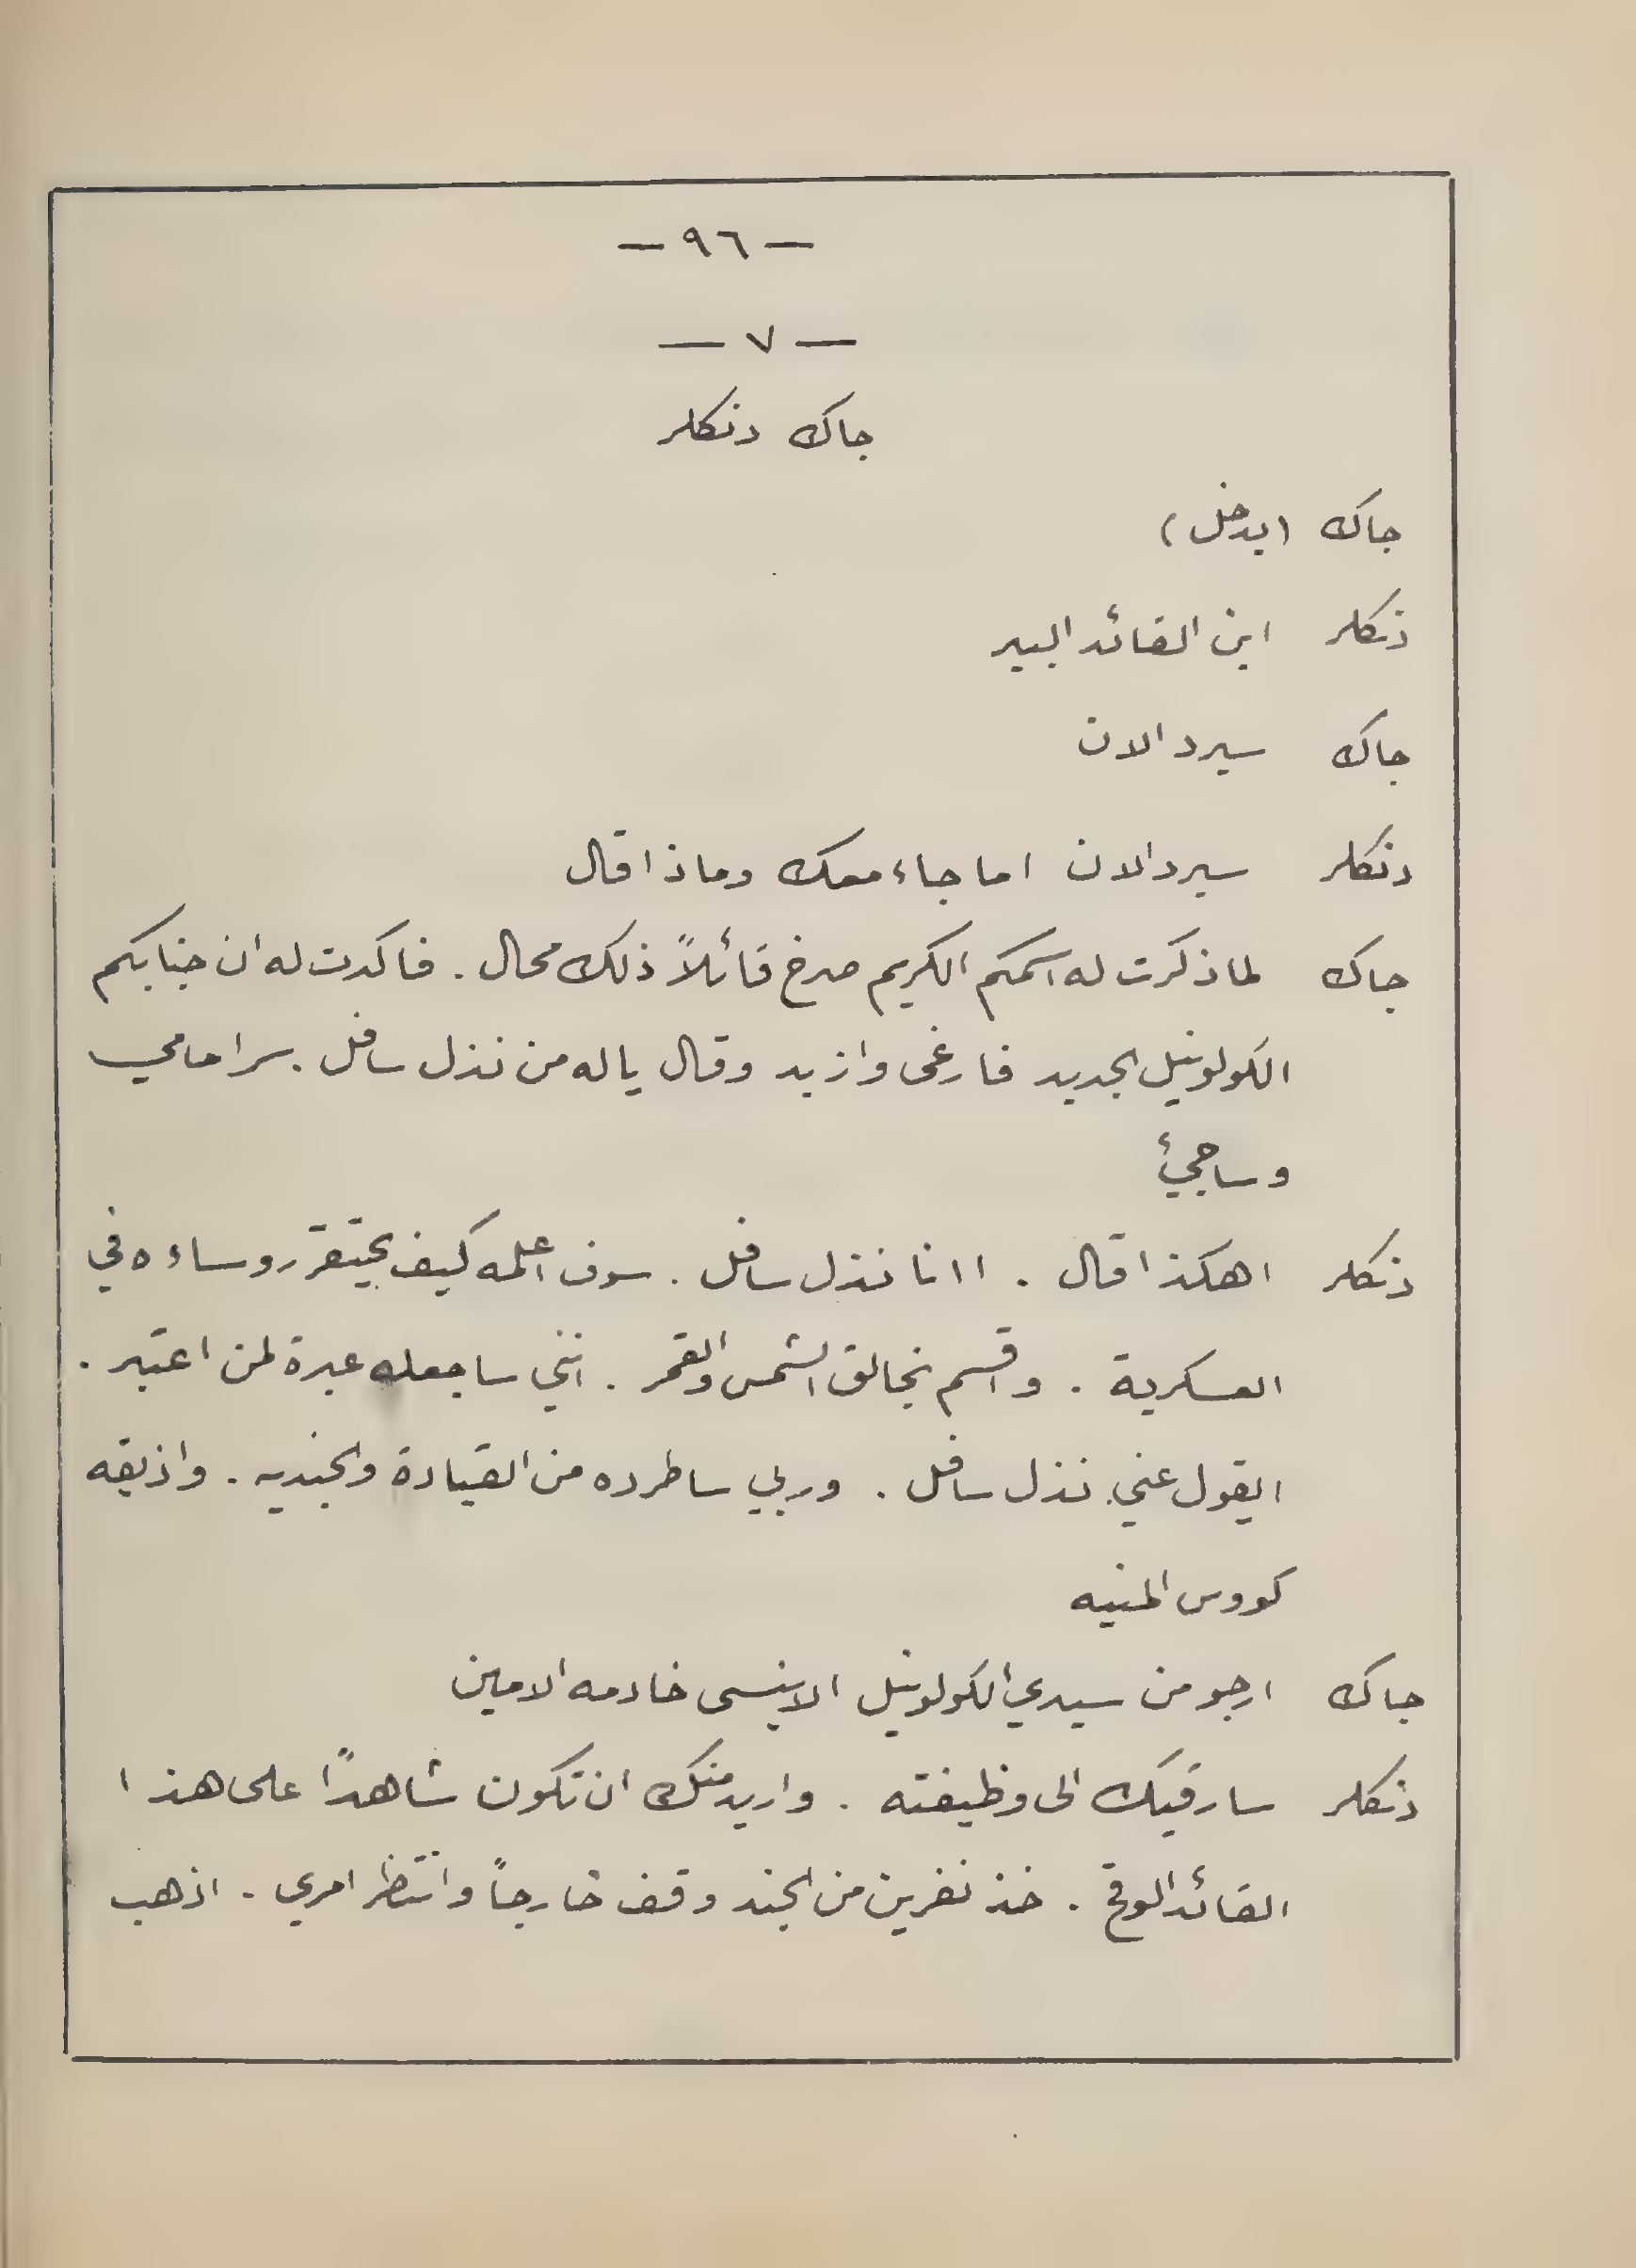 — ٩٦ —
— ٧ —
جاك دنكلر
جاك (يدخل)
دنكلر اين القائد البير
جاك سيرد الان
دنكلر سيرد الان اما جاء معك وماذا قال
جاك لما ذكرت له اسمكم الكريم صرخ قائلاً ذلك محال . فاكدت له ان جنابكم
الكولونيل الجديد فارغى وازبد وقال ياله من نذل سافل . سر امامي
وساجيئ
دنكلر اهكذا قال . اانا نذل سافل . سوف اعلمه كيف يحتقر روساءه في
العسكرية . واقسم بخالق الشمس والقمر . انني ساجعله عبرة لمن اعتبر .
ايقول عني نذل سافل . وربي ساطرده من القيادة والجنديه . واذيقه
كووس المنيه
جاك ارجو من سيدي الكولونيل الاينسى خادمه الامين
دنكلر سارقيك الى وظيفته . واريد منك ان تكون شاهداً على هذا
القائد الوقح . خذ نفرين من الجند وقف خارجاً وانتظر امري . اذهب